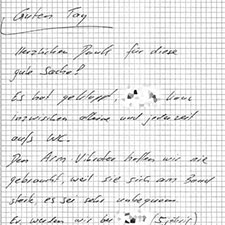 Guten Tag
Herzlichen Dank für diese
gute Sache!
Es hat geklappt, kann
inzwischen alleine und jederzeit
aufs WC.
Den Arm-Vibrator haben wir nie
gebraucht, weil sie sich am Band
störte es sei sehr unbequem
Er werden wir bei (5jährig)